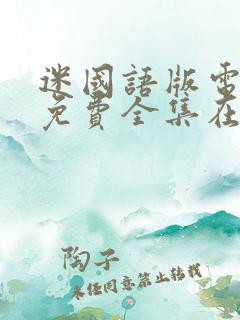 迷國語版電
免費全集在
陶子
未经同意禁止转载